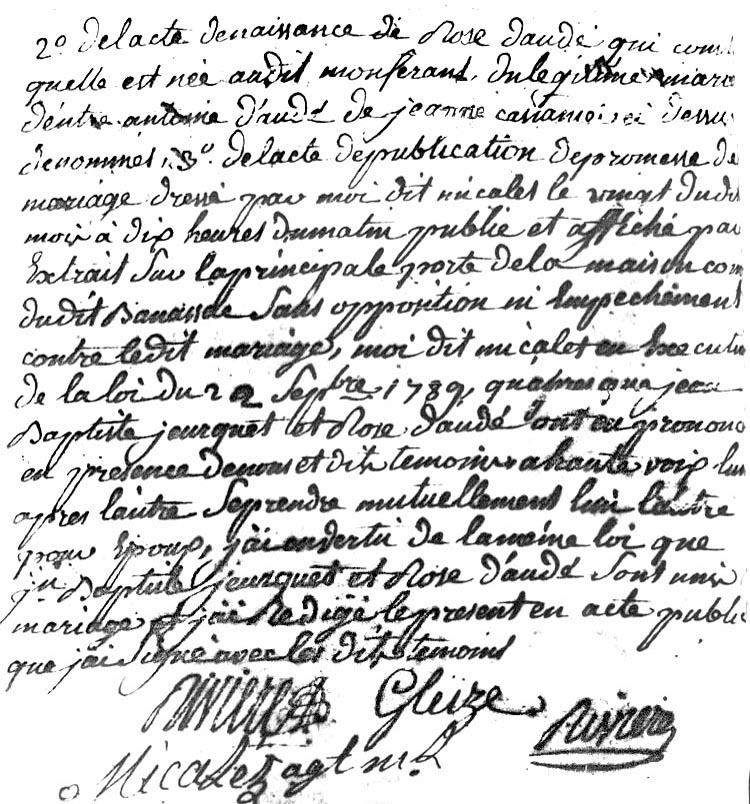 2º de lacte denaissance de Rose daudé qui const
quelle est née audit monferant, du légitime maria
dentre antoine d'audé de jeanne ci dessus
denommés, 3º. de lacte depublication depromesse de
mariage dressé par moi dit micalet le vingt dudit
mois à dix heures dumatin publie et affiché par
Extrait sur laprincipale porte dela maison com
dudit Banassac Sans opposition ni Empechément
contre ledit mariage, moi dit micalet en Executio
de la loi du 22 Septbre 1789, quapres que jean
Baptiste jeurquet et Rose d'audé ont eu prononc
en présence denous et dits temoins ahaute voix lun
apres lautre Seprendre mutuellement lun lautre
pour Epoux, j'ai envertu de laméme loi que
jn Baptiste jeurquet et Rose d'audé Sont unis
mariage et jai Redigé lepresent en acte public
que jai Signé avec les dits temoins
Rivière Gleize Rivière
Micalet agt